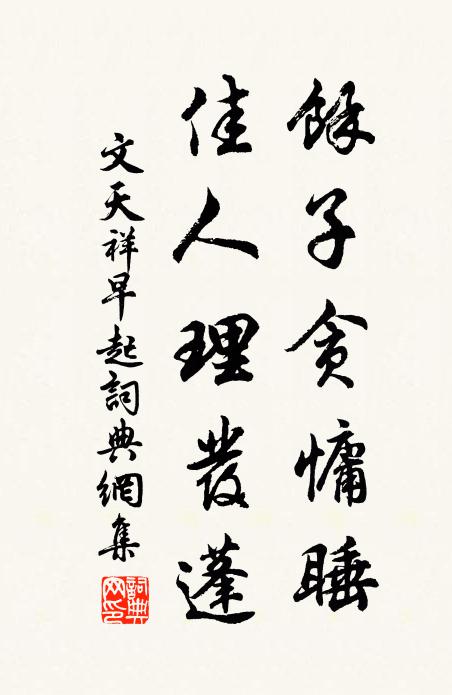 餘子貪慵睡
佳人理發蓬
文天祥早起詞典網集
詞典網印